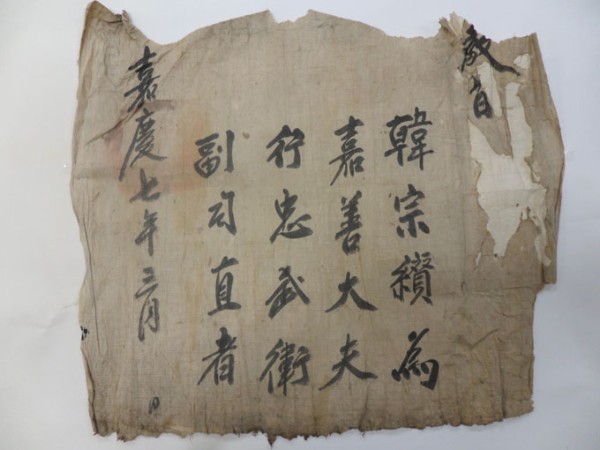 敎旨
韓宗纉為
嘉善大夫
行忠武衛
副司直者
嘉慶七年三月 日